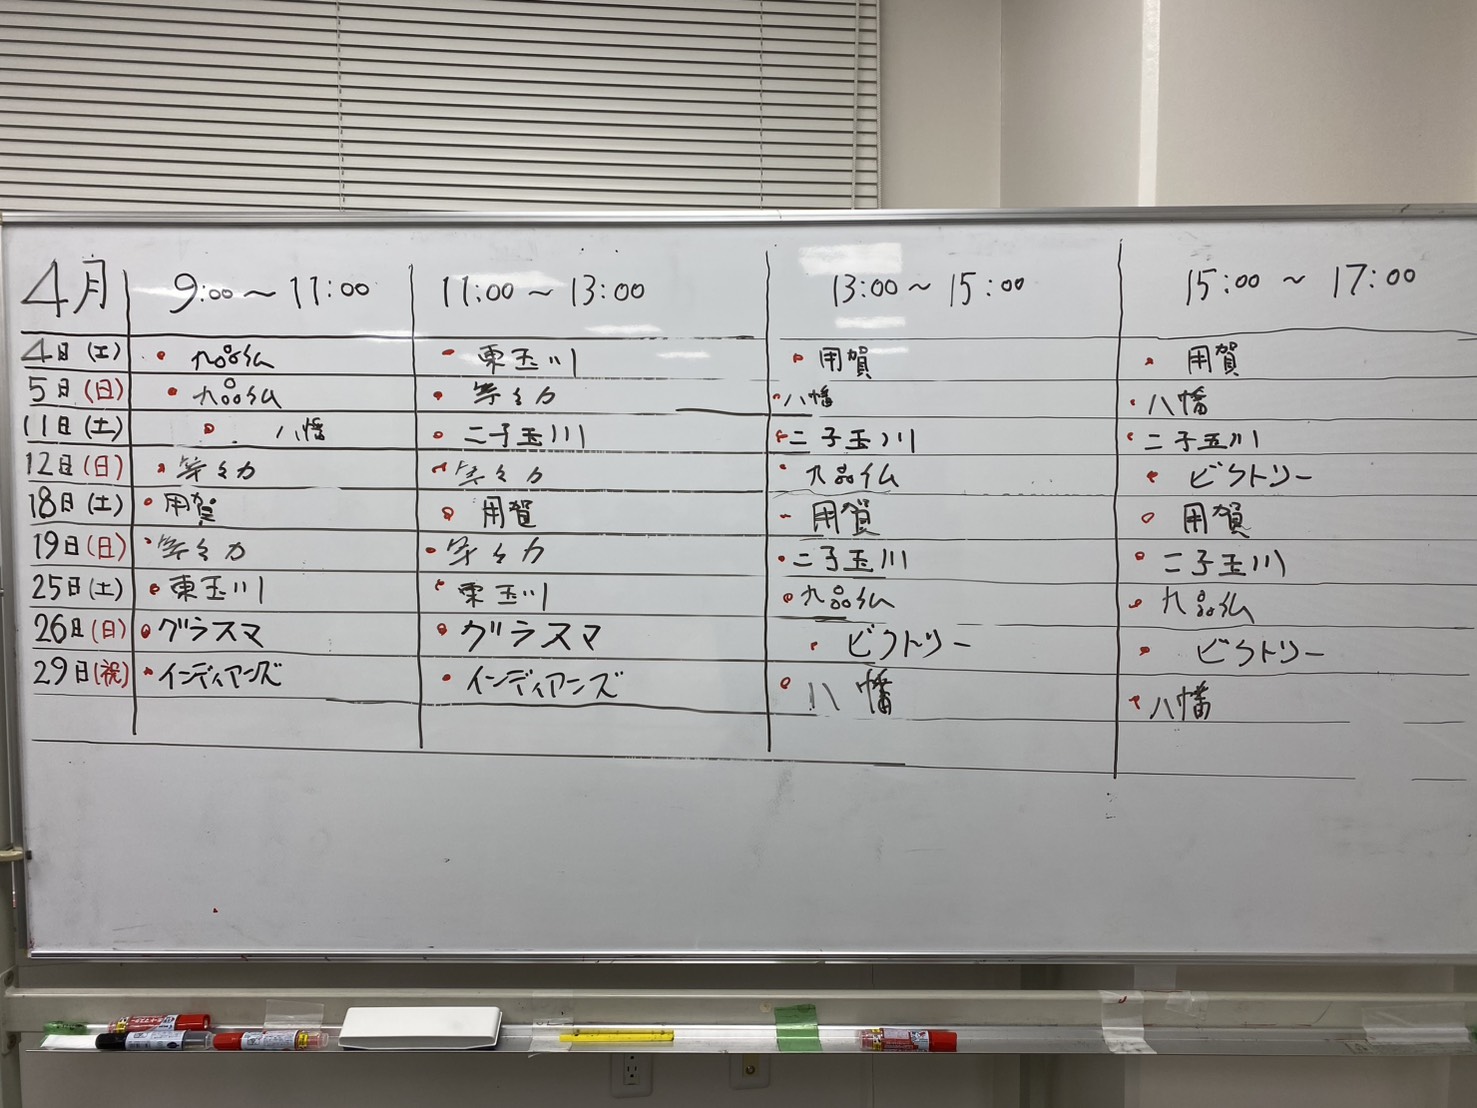 4月 9:00〜11:00 11:00〜13:00 13:00〜15:00 15:00〜17:00
4日(土) 九品仏 東玉川 用賀 用賀
5日(日) 九品仏 等々力 八幡 八幡
11日(土) 八幡 二子玉川 二子玉川 二子玉川
12日(日) 等々力 等々力 九品仏 ビクトリー
18日(土) 用賀 用賀 用賀 用賀
19日(日) 等々力 等々力 二子玉川 二子玉川
25日(土) 東玉川 東玉川 九品仏 九品仏
26日(日) グラスマ グラスマ ビクトリー ビクトリー
29日(祝) インディアンズ インディアンズ 八幡 八幡